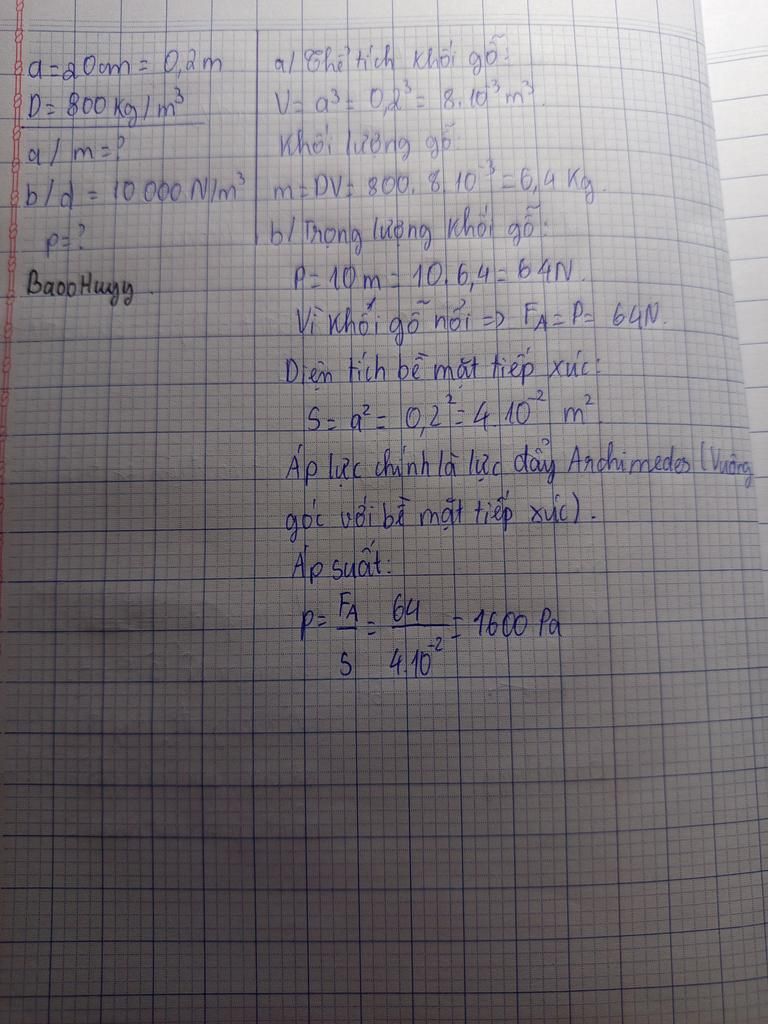 a = 20cm = 0,2 m
D = 800 Kg/m³
a/ m = ?
b/ d = 10 000 N/m³
p = ?
BaooHuyy.
a/ Thể tích khối gỗ:
V = a³ = 0,2³ = 8.10⁻³ m³.
Khối lượng gỗ:
m = DV = 800. 8.10⁻³ = 6,4 Kg.
b/ Trọng lượng khối gỗ:
P = 10 m = 10. 6,4 = 64N.
Vì khối gỗ nổi => F_A = P = 64N.
Diện tích bề mặt tiếp xúc:
S = a² = 0,2² = 4.10⁻² m².
Áp lực chính là lực đẩy Archimedes (Vuông
góc với bề mặt tiếp xúc).
Áp suất:
p = F_A/S = 64/4.10⁻² = 1600 Pa